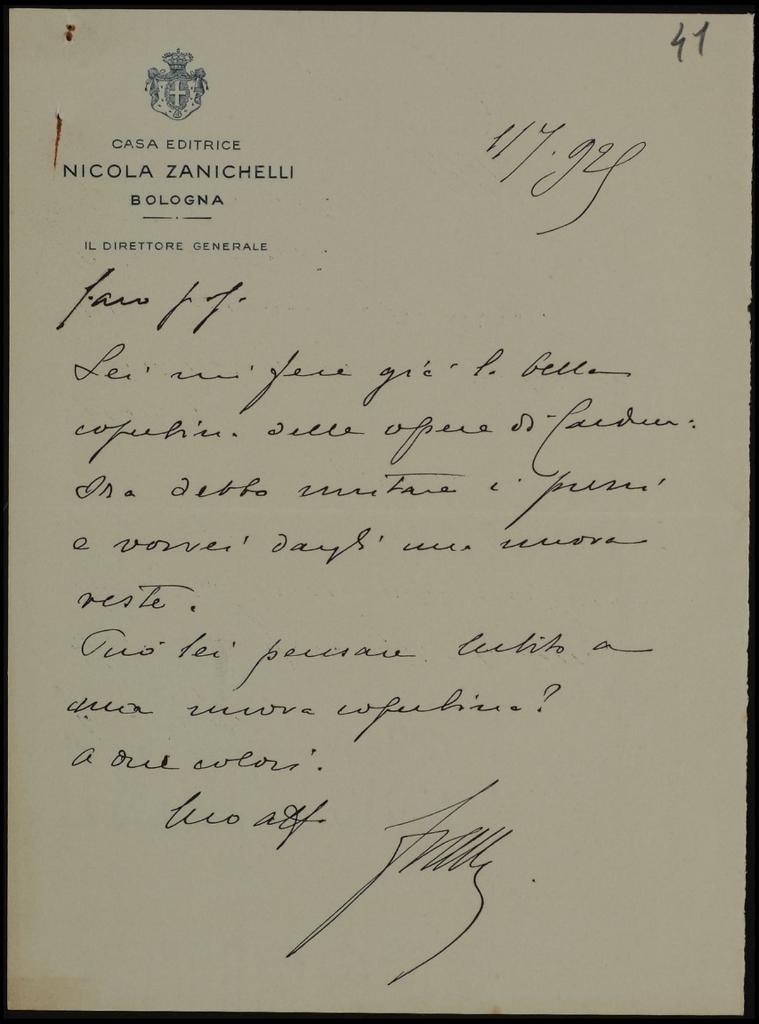 41
CASA EDITRICE
NICOLA ZANICHELLI
BOLOGNA
IL DIRETTORE GENERALE
11/7.925
Caro prof.
Lei mi fece già la bella
copertina delle opere di Carducci.
Ora debbo mutare i prezzi
e vorrei dargli una nuova
veste.
Può lei pensare subito a
una nuova copertina?
A due colori.
Suo aff.